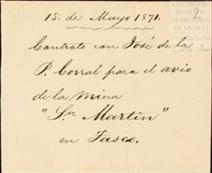 15. de Mayo 1871.
2
Contrato con José de la
P. Corral para el avio
de la mina
"Sn Martin"
en Tasco.